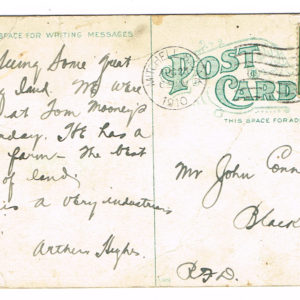 SPACE FOR WRITING MESSAGES
Seeing Some great
land. We were
at Tom Mooney's
day. He has a
farm - the best
of land
is a very industrious
Arthur Hughs.
POST
CARD
MITCHELL
1910
THIS SPACE FOR AD
Mr John Conn
Black
R.F.D.